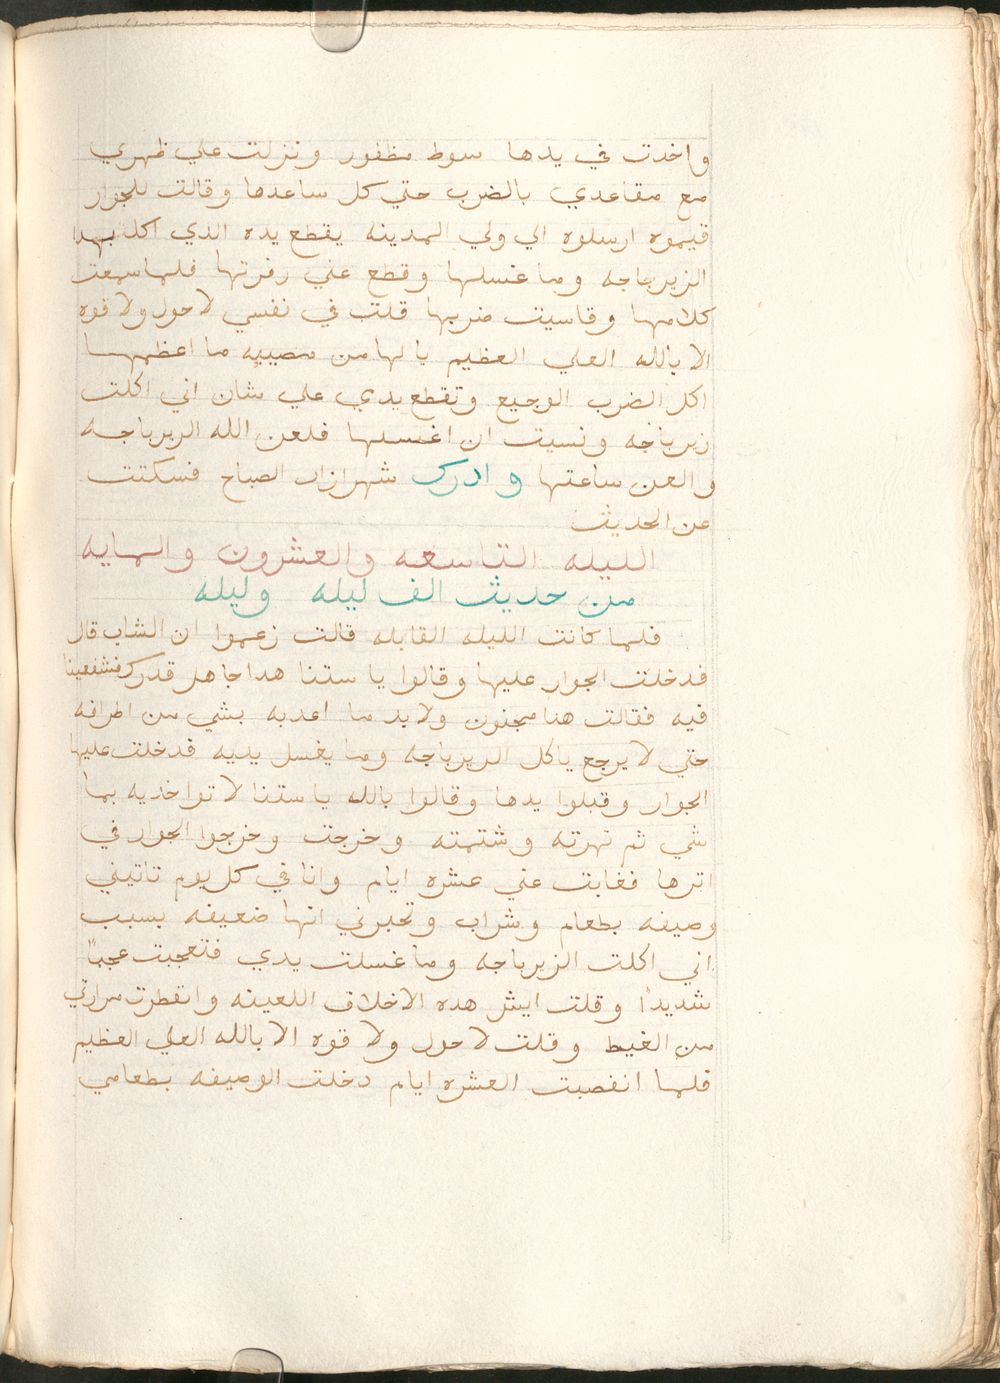 واخدت في يدها سوط مظفور ونزلت علي ظهري
مع مقاعدي بالضرب حتي كل ساعدها وقالت للجوار
قيموه ارسلوه الي ولي المدينه يقطع يده الذي اكل بهدا
الزيرباجه وما غسلها وقطع عني زفرتها فلما سمعت
كلامها وقاسيت ضربها قلت في نفسي لا حول ولا قوه
الا بالله العلي العظيم يا لها من مصيبه ما اعظمها
اكل الضرب الوجيع وتقطع يدي علي شان اني اكلت
زيرباجه ونسيت ان اغسلها فلعن الله الزيرباجه
والعن ساعتها وادرك شهرازاد الصباح فسكتت
عن الحديث
الليله التاسعه والعشرون والمايه
من حديث الف ليله وليله
فلما كانت الليله القابله قالت زعموا ان الشاب قال
فدخلت الجوار عليها وقالوا يا ستنا هدا جاهل قدرك فشفعينا
فيه فقالت هنا مجنون ولا بد ما اعدبه بشي من اطرافه
حتي لا يرجع ياكل الزيرباجه وما يغسل يديه فدخلت عليها
الجوار وقبلوا يدها وقالوا بالله يا ستنا لا تواخديه بما
شي ثم نهرته وشتمته وخرجت وخرجوا الجوار في
اترها فغابت عني عشره ايام وانا في كل يوم تاتيني
وصيفه بطعام وشراب وتخبرني انها ضعيفه بسبب
اني اكلت الزيرباجه وما غسلت يدي فتعجبت عجبًا
شديدًا وقلت ايش هده الاخلاق اللعينه وانفطرت مرارتي
من الغيظ وقلت لا حول ولا قوه الا بالله العلي العظيم
فلما انقصبت العشره ايام دخلت الوصيفه بطعامي